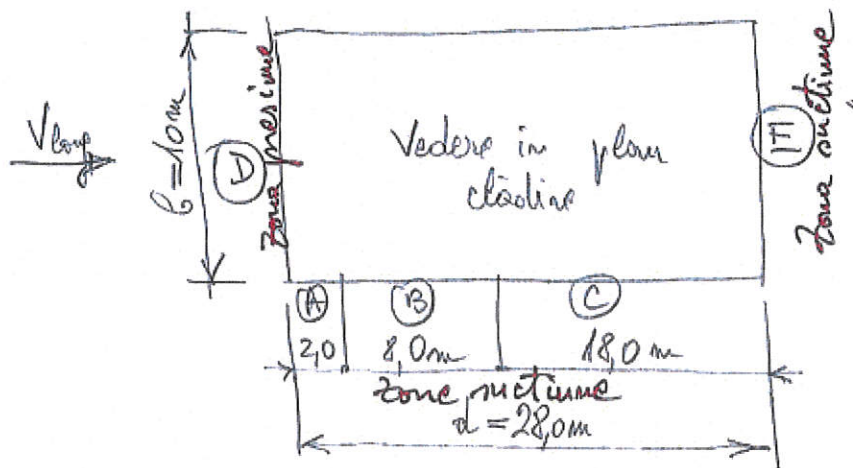 V long
b=10m
D
zona presiune
Vedere in plan
clădire
E
zona sucțiune
A
B
C
2,0
8,0m
18,0m
zone sucțiune
d=28,0m